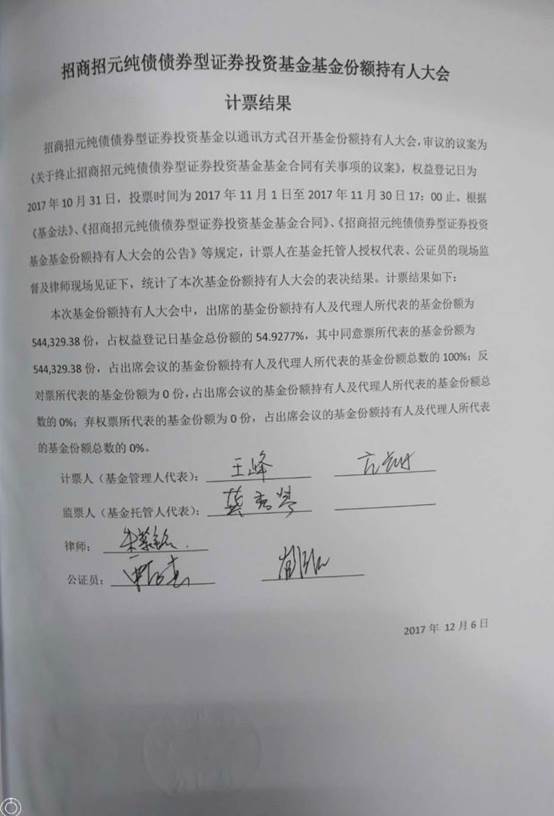 招商招元纯债债券型证券投资基金基金份额持有人大会
计票结果
招商招元纯债债券型证券投资基金以通讯方式召开基金份额持有人大会，审议的议案为
《关于终止招商招元纯债债券型证券投资基金基金合同有关事项的议案》，权益登记日为
2017年10月31日，投票时间为2017年11月1日至2017年11月30日17：00止。根据
《基金法》、《招商招元纯债债券型证券投资基金基金合同》、《招商招元纯债债券型证券投资
基金基金份额持有人大会的公告》等规定，计票人在基金托管人授权代表、公证员的现场监
督及律师现场见证下，统计了本次基金份额持有人大会的表决结果。计票结果如下：
本次基金份额持有人大会中，出席的基金份额持有人及代理人所代表的基金份额为
544,329.38份，占权益登记日基金总份额的54.9277%，其中同意票所代表的基金份额为
544,329.38份，占出席会议的基金份额持有人及代理人所代表的基金份额总数的100%；反
对票所代表的基金份额为0份，占出席会议的基金份额持有人及代理人所代表的基金份额总
数的0%；弃权票所代表的基金份额为0份，占出席会议的基金份额持有人及代理人所代表
的基金份额总数的0%。
计票人（基金管理人代表）：王峰
监票人（基金托管人代表）：
律师：
公证员：
2017年12月6日